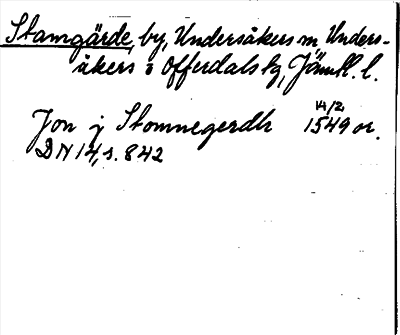 Stamgärde, by, Undersåkers sn, Unders-
åkers o Offerdals tg, Jämtl. l.
14/2
Jon j Stomnegerdh 1549 or.
DN 14, s. 842